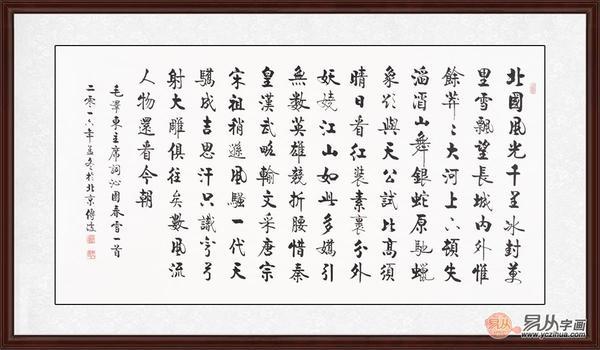 北國風光千里冰封萬
里雪飄望長城內外惟
餘莽〻大河上下頓失
滔滔山舞銀蛇原馳蠟
象欲與天公試比高須
晴日看紅裝素裹分外
妖嬈江山如此多嬌引
無數英雄競折腰惜秦
皇漢武略輸文采唐宗
宋祖稍遜風騷一代天
驕成吉思汗只識彎弓
射大雕俱往矣數風流
人物還看今朝
毛澤東主席詞沁園春雪一首
二零一六年孟冬於北京
易从字画
www.yczihua.com